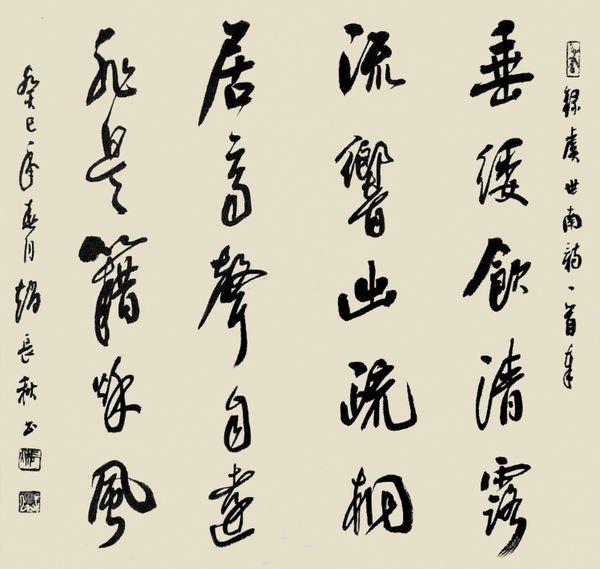 録虞世南詩一首
垂緌飲清露
流響出疏桐
居高聲自遠
非是籍秋風
癸巳年春月趙長秋书